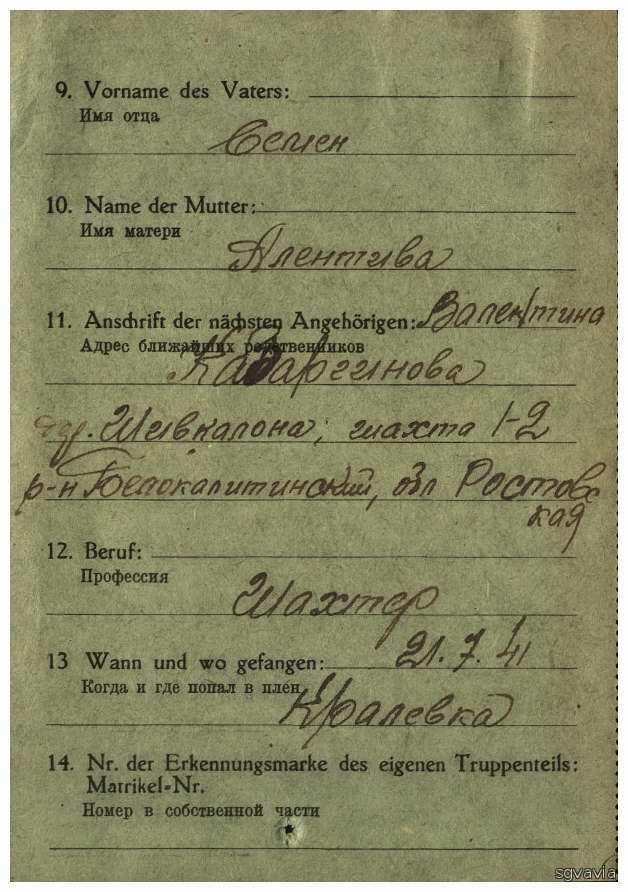 9. Vorname des Vaters:
Имя отца
Семен
10. Name der Mutter:
Имя матери
Алентива
11. Anschrift der nächsten Angehörigen: Валентина
Адрес ближайших родственников
шахта 1-2
р-н Белокалитинский, обл Ростовс
кая
12. Beruf:
Профессия
Шахтер
13 Wann und wo gefangen: 21.7.41
Когда и где попал в плен
Кралевка
14. Nr. der Erkennungsmarke des eigenen Truppenteils:
Matrikel-Nr.
Номер в собственной части
sgvavia